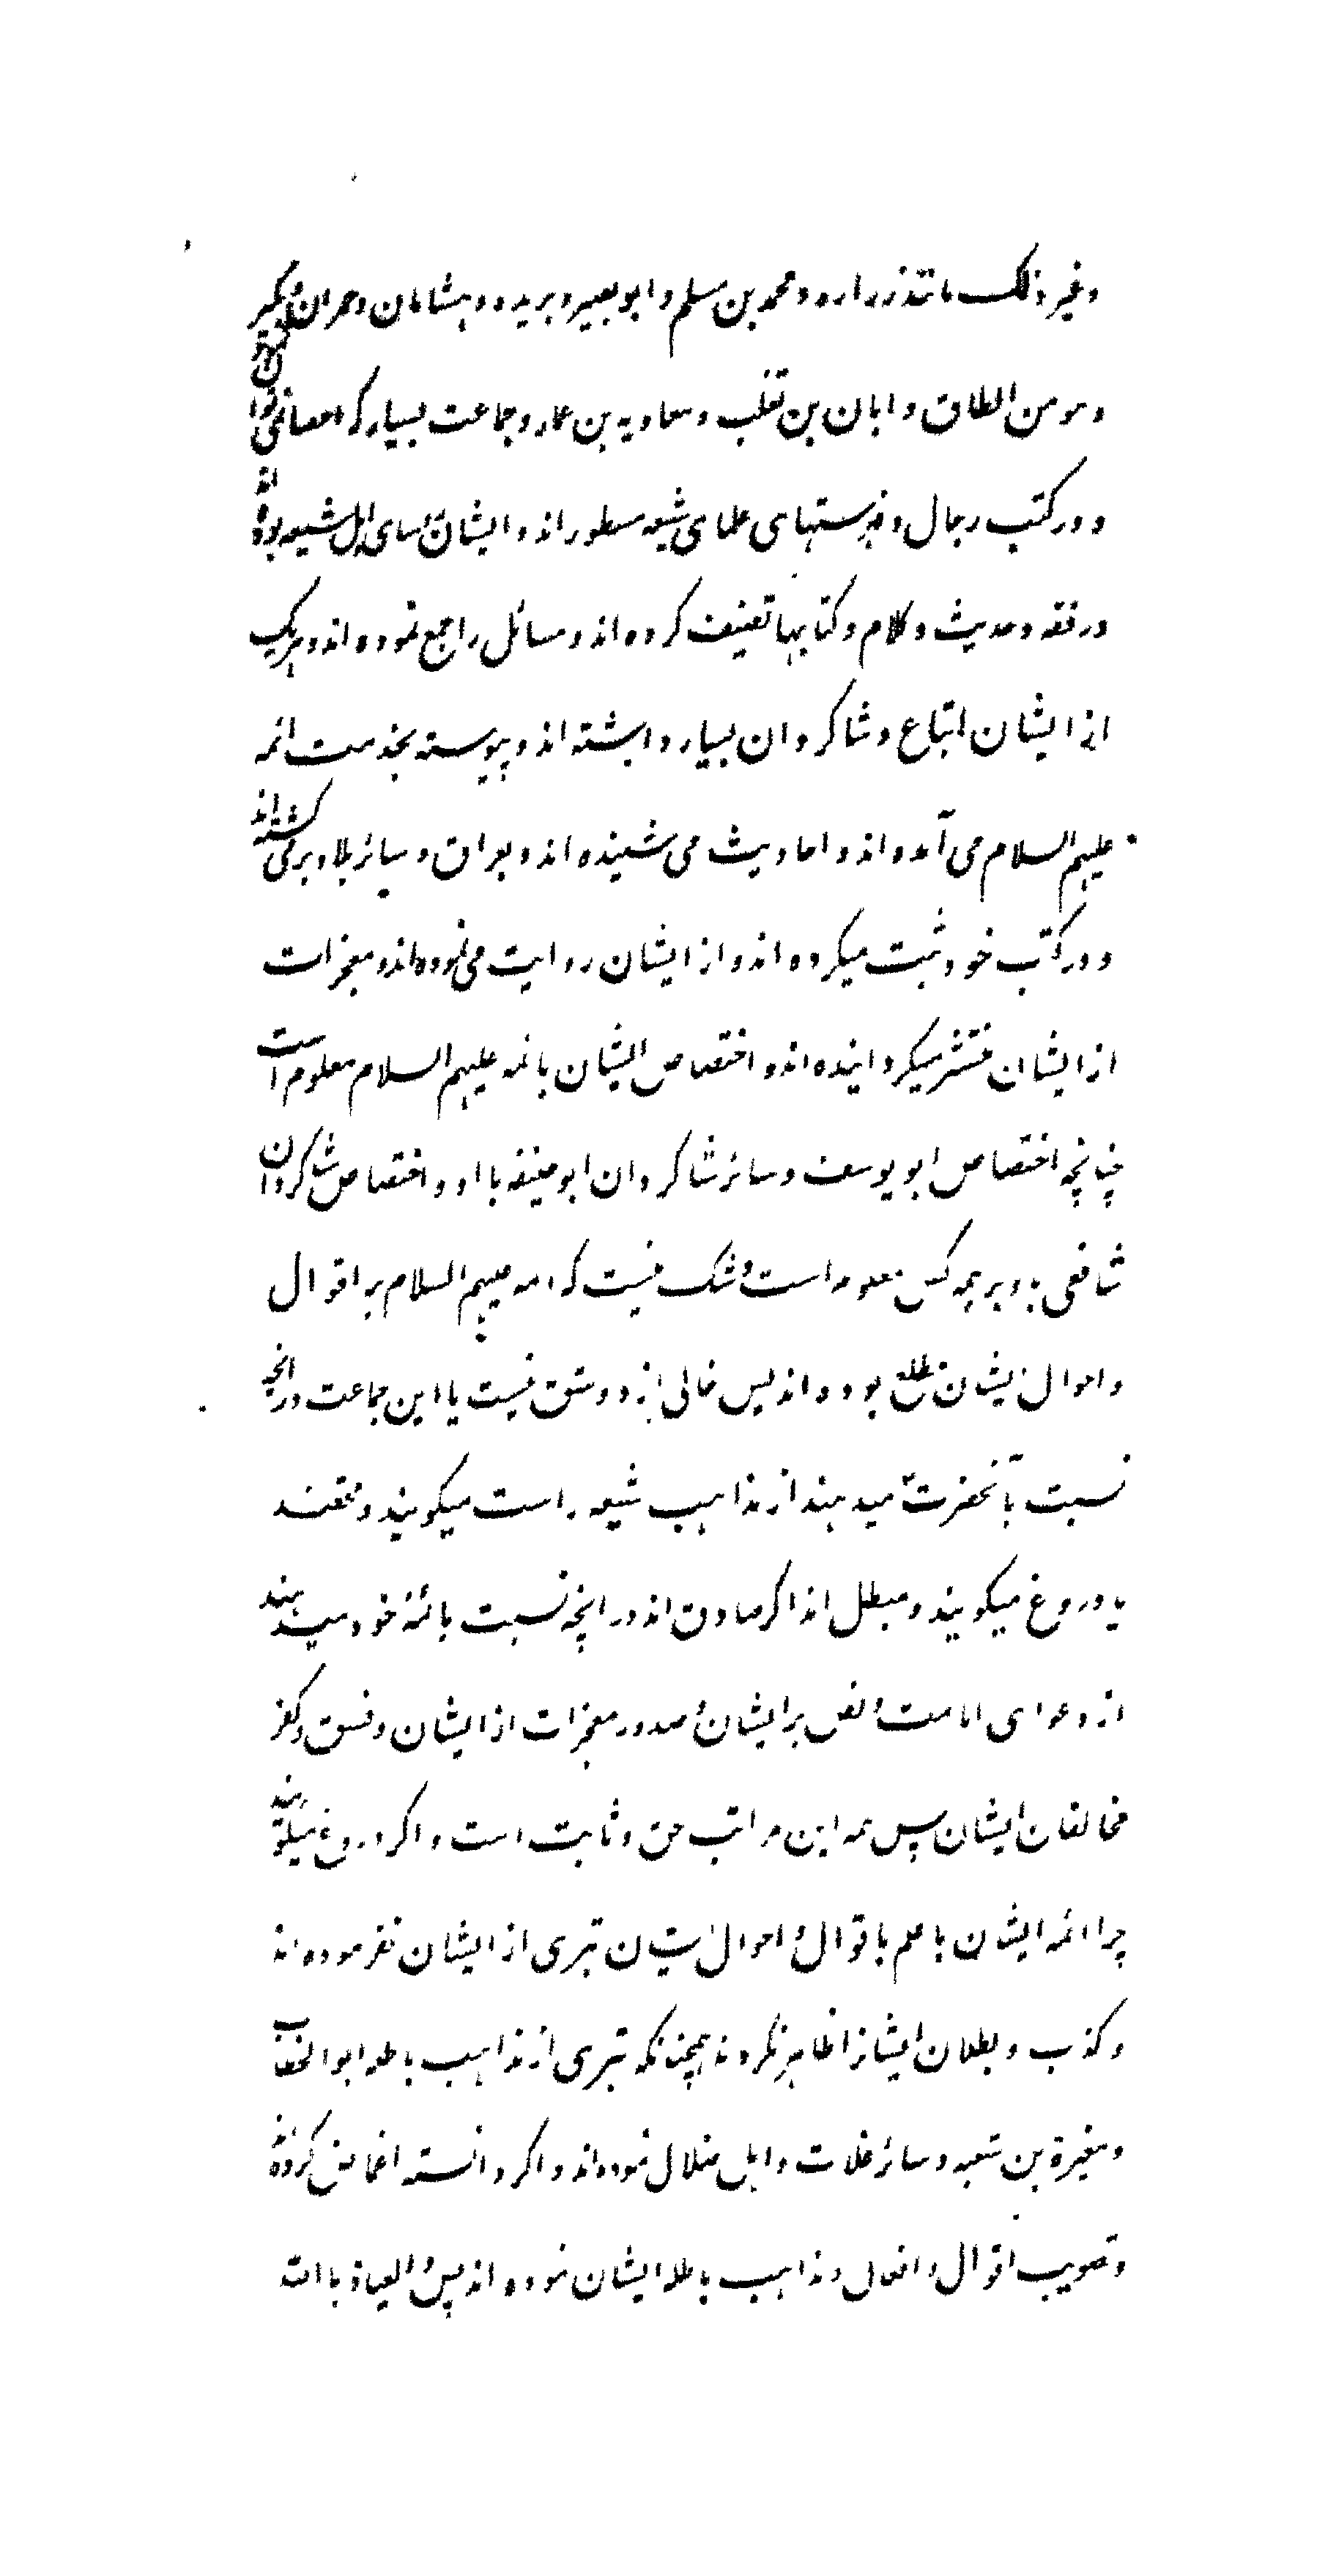 و غیر ذلک مانند زراره و محمد بن مسلم و ابو بصیر و برید و هشامان و حمران و بکیر
و مومن الطاق و ابان بن تغلب و معاویه بن عمار و جماعت بسیار که احصا نمی توان
و در کتب رجال و فهرستهای علمای شیعه مسطور اند و ایشان روسای اهل شیعه بوده اند
در فقه و حدیث و کلام و کتابها تصنیف کرده اند و مسائل را جمع نموده اند و هر یک
از ایشان اتباع و شاکردان بسیار داشته اند و پیوسته بخدمت ائمه
علیهم السلام می آمده اند و احادیث می شنیده اند و بعراق و سائر بلاد بر می کشته اند
و در کتب خود ثبت میکرده اند و از ایشان روایت می نموده اند و معجزات
از ایشان منتشر میکردانیده اند و اختصاص ایشان بائمه علیهم السلام معلوم است
چنانچه اختصاص ابو یوسف و سائر شاکردان ابو حنیفه با او و اختصاص شاکردان
شافعی باو بر همه کس معلوم است و شک نیست که ائمه علیهم السلام بر اقوال
و احوال ایشان مطلع بوده اند پس خالی از دو شق نیست یا این جماعت در انچه
نسبت بآنحضرت میدهند از مذاهب شیعه راست میکویند و محقند
یا دروغ میکویند و مبطل اند اکر صادق اند در انچه نسبت بائمهٔ خود میدهند
از دعوای امامت و نص بر ایشان و صدور معجزات از ایشان و فسق و کفر
مخالفان ایشان پس همه این مراتب حق و ثابت است و اکر دروغ میکویند
چرا ائمه ایشان با علم باقوال و احوال ایشان تبری از ایشان نفرموده اند
و کذب و بطلان ایشانرا ظاهر نکردند همچنانکه تبری از مذاهب باطله ابو الخطاب
و مغیرة بن شعبه و سائر غلات و اهل ضلال نموده اند و اکر دانسته اغماض کرده اند
و تصویب اقوال و افعال و مذاهب باطله ایشان نموده اند پس و العیاذ باالله